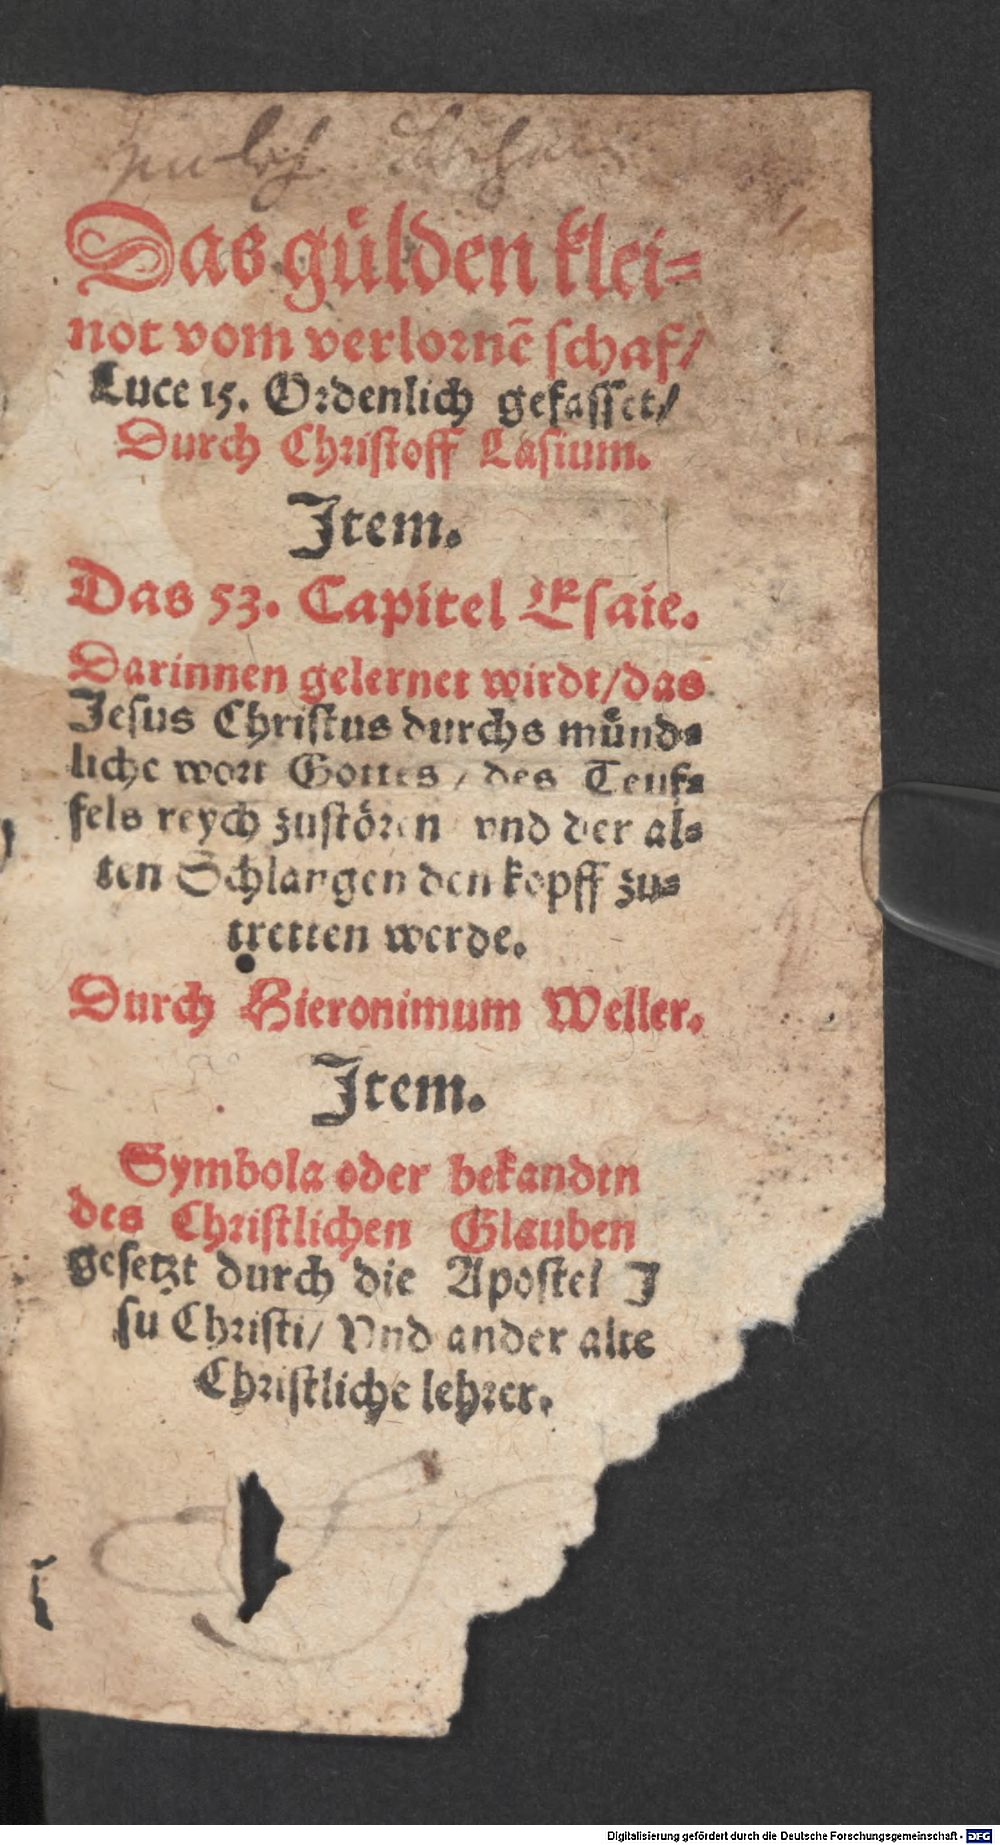 Das gülden klei-
not vom verlornẽ schaf/
Luce 15. Ordenlich gefasset/
Durch Christoff Lasium.
Item.
Das 53. Capitel Esaie.
Darinnen gelernet wirdt/das
Jesus Christus durchs můnd-
liche wort Gottes / des Teuf-
fels reych zustören vnd der al-
ten Schlangen den kopff zu-
tretten werde.
Durch Hieronimum Weller.
Item.
Symbola oder bekanden
des Christlichen Glauben
gesetzt durch die Apostel J
su Christi/ Vnd ander alte
Christliche lehrer.
Digitalisierung gefördert durch die Deutsche Forschungsgemeinschaft - DFG